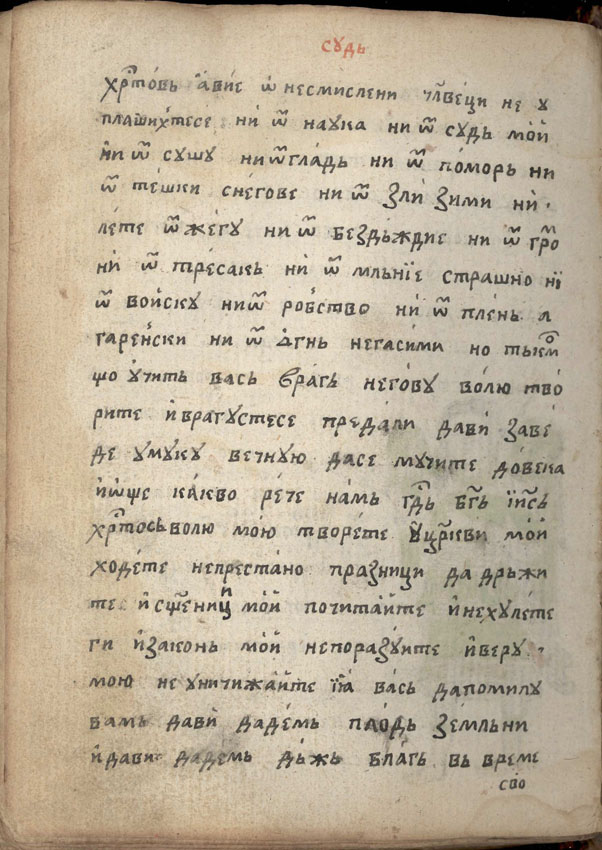 сꙋдь
хрⷭ҇товь авіе ѿ несмислени чл҃веци не ꙋ
плашихтесе ни ѿ наꙋка ни ѿ сꙋдь мои
ни ѿ сꙋшꙋ ни ѿ гладь ни ѿ поморь ни
ѿ тешки снегове ни ѿ зли зими ни
лете ѿ жегꙋ ни ѿ бездьждие ни ѿ грⷪ
ни ѿ тресакь ни ѿ мльніе страшно ни
ѿ воискꙋ ни ѿ робство ни ѿ плень а
гаренски ни ѿ ѡгнь негасими но тькмⷪ
що ꙋчить вась врагь неговꙋ волю тво
рите и врагꙋстесе предали дави заве
де ꙋ мꙋкꙋ вечнꙋю дасе мꙋчите довека
и ѡще какво рече намь гд҃ь бг҃ь іис҃ь
хрⷭ҇тось волю мою творете ꙋ црⷦ҇ви мои
ходете непрестано празници да држи
те и сщ҃еници мои почитаите и не хꙋлете
ги и законь мои не поразꙋите и верꙋ
мою не ꙋничижаите і҆ ꙗ вась да помилꙋ
вамь дави дадемь плодь земльни
и дави дадемь дьжь благь вь време
сво